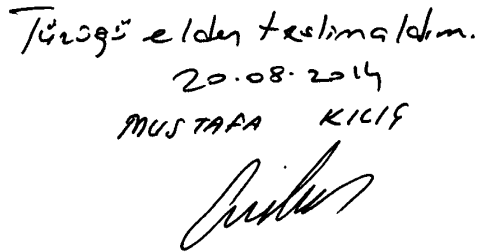 Tüzüğü elden teslim aldım.
20.08.2014
MUSTAFA KILIÇ